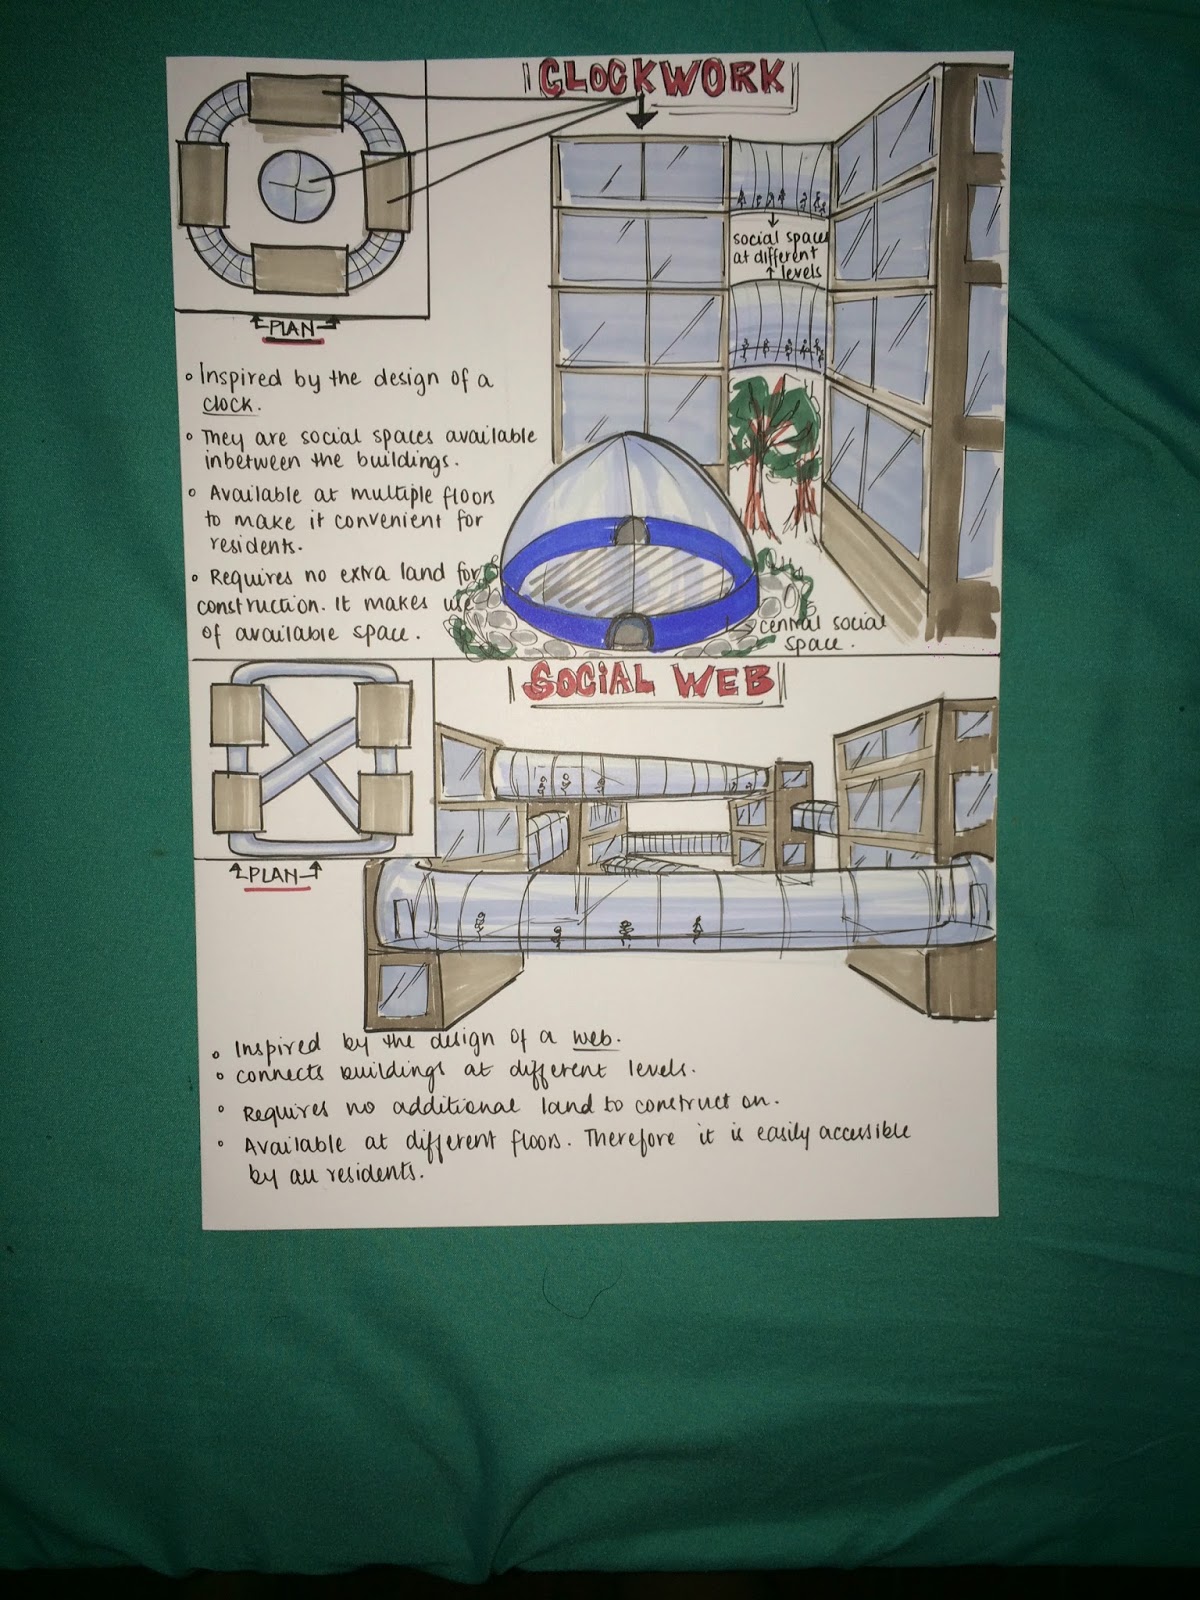 CLOCKWORK
PLAN
social spaces
at different
levels
Inspired by the design of a
clock.
They are social spaces available
inbetween the buildings.
Available at multiple floors
to make it convenient for
residents.
Requires no extra land for
construction. It makes use
of available space.
central social
space.
SOCIAL WEB
PLAN
Inspired by the design of a web.
connects buildings at different levels.
Requires no additional land to construct on.
Available at different floors. Therefore it is easily accessible
by all residents.